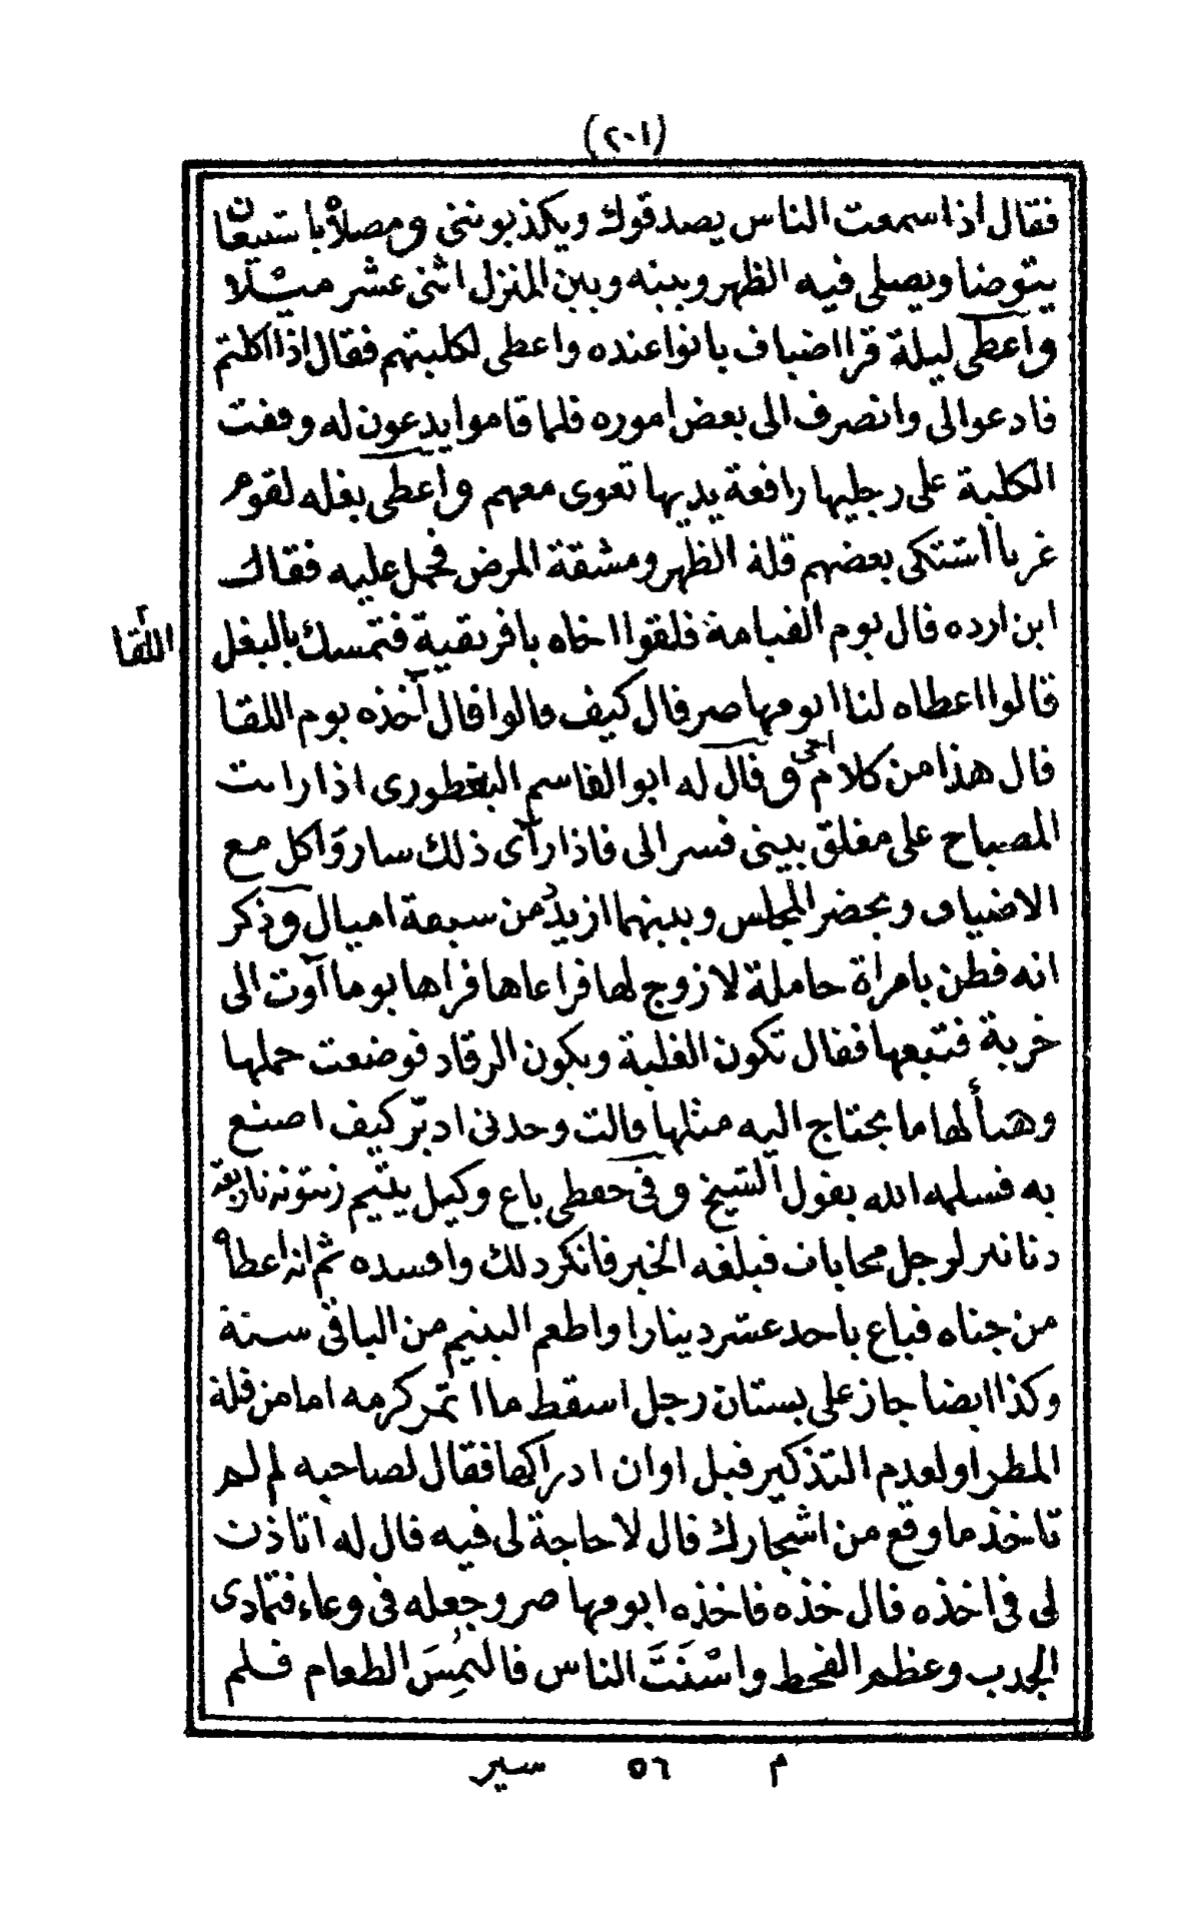 (٢٠١)
فقال اذا سمعت الناس يصدقوك ويكذبوننى و مصلاه باستيعان
يتوضا ويصلى فيه الظهر وبينه وبين المنزل اثنى عشر ميلا
واعطى ليلة قرا اضياف باتوا عنده واعطى لكلبتهم فقال اذا اكلتم
فادعوا لى وانصرف الى بعض اموره فلما قاموا يدعون له وقفت
الكلبة على رجليها رافعة يديها تعوى معهم واعطى بغله لقوم
غربا اشتكى بعضهم قلة الظهر ومشقة المرض فحمل عليه فقال
ابن ارده قال يوم القيامة فلقوا اخاه بافريقية فتمسك بالبغل
اللقا
قالوا اعطاه لنا ابو مهاصر قال كيف قالوا قال آخذه يوم اللقا
قال هذا من كلام اخى و قال له ابو القاسم البغطورى اذا رايت
المصباح على مغلق بيتى فسر الى فاذا رآى ذلك سار وآكل مع
الاضياف ويحضر المجلس وبينهما ازيد من سبعة اميال وذكر
انه فطن بامرأة حاملة لا زوج لها فراعاها فراها يوما آوت الى
خربة فتبعها فقال تكون الغلبة ويكون الرقاد فوضعت حملها
وهيأ لها ما يحتاج اليه مثلها قالت وحدنى ادبّر كيف اصنع
به فسلمه الله يقول الشيخ و فى حفظى باع وكيل يتيم زيتونه باربعة
دنانير لرجل محابات فبلغه الخبر فانكر ذلك وافسده ثم انه اعطاه
من جناه فباع باحد عشر دينارا واطعم اليتيم من الباقى سنة
وكذا ايضا جاز على بستان رجل اسقط ما اثمر كرمه اما من قلة
المطر او لعدم التذكير قبل اوان ادراكها فقال لصاحبه لم لم
تاخذ ما وقع من اشجارك قال لا حاجة لى فيه قال له اتاذن
لى فى اخذه قال خذه فاخذه ابو مهاصر وجعله فى وعاء فتمادى
الجدب وعظم القحط واسْنَتَ الناس فالتُمِسَ الطعام فلم
م ٥٦ سير